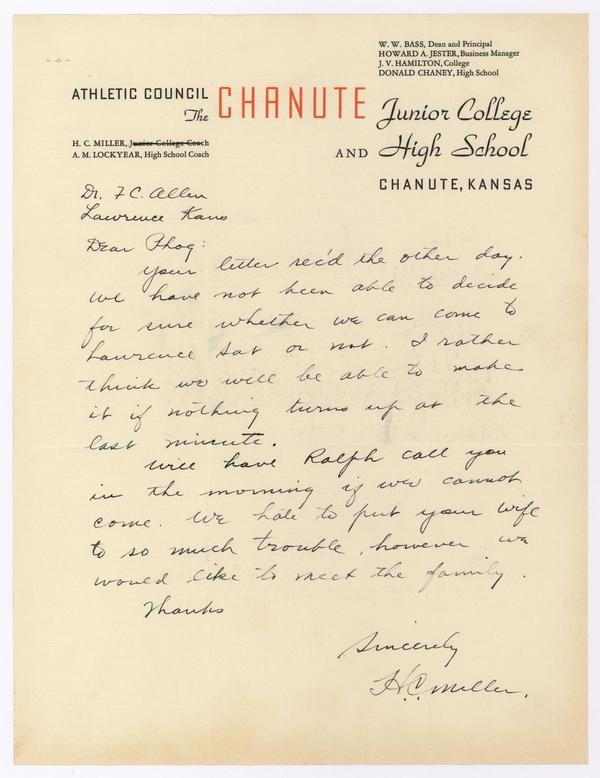 W. W. BASS, Dean and Principal
HOWARD A. JESTER, Business Manager
J. V. HAMILTON, College
DONALD CHANEY, High School
ATHLETIC COUNCIL
The CHANUTE Junior College
AND High School
H. C. MILLER, Junior College Coach
A. M. LOCKYEAR, High School Coach
CHANUTE, KANSAS
Dr. F C. Allen
Lawrence Kans
Dear Phog:
Your letter rec'd the other day.
We have not been able to decide
for sure whether we can come to
Lawrence Sat or not. I rather
think we will be able to make
it if nothing turns up at the
last minute.
Will have Ralph call you
in the morning if we cannot
come. We hate to put your wife
to so much trouble, however we
would like to meet the family.
Thanks
Sincerely
H.C. Miller.